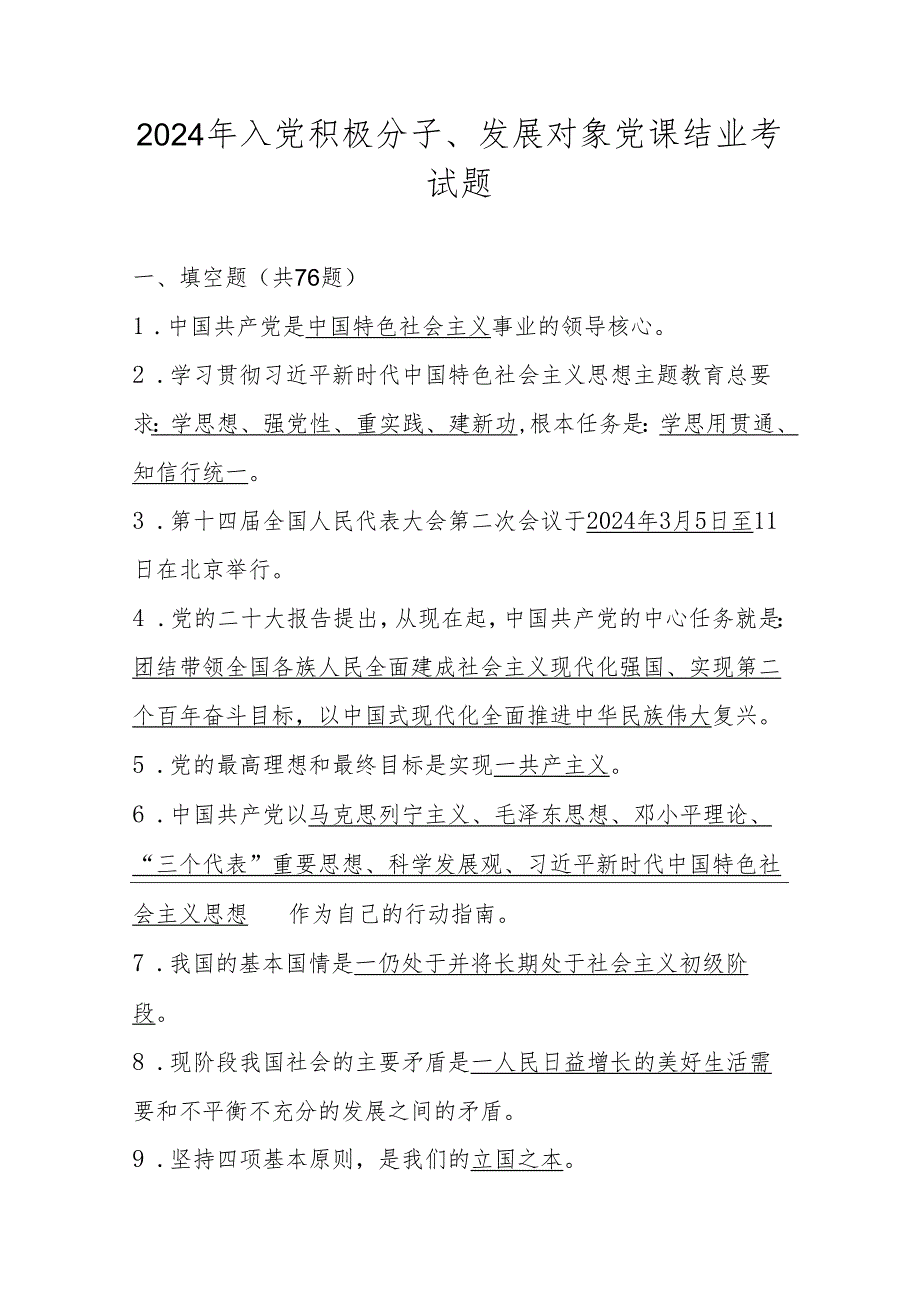 2024年入党积极分子、发展对象党课结业考
试题
一、填空题（共76题）
1 .中国共产党是中国特色社会主义事业的领导核心。
2 .学习贯彻习近平新时代中国特色社会主义思想主题教育总要
求：学思想、强党性、重实践、建新功,根本任务是：学思用贯通、
知信行统一。
3 .第十四届全国人民代表大会第二次会议于2024年3月5日至11
日在北京举行。
4 .党的二十大报告提出,从现在起,中国共产党的中心任务就是：
团结带领全国各族人民全面建成社会主义现代化强国、实现第二
个百年奋斗目标，以中国式现代化全面推进中华民族伟大复兴。
5 .党的最高理想和最终目标是实现一共产主义。
6 .中国共产党以马克思列宁主义、毛泽东思想、邓小平理论、
“三个代表”重要思想、科学发展观、习近平新时代中国特色社
会主义思想 作为自己的行动指南。
7 .我国的基本国情是一仍处于并将长期处于社会主义初级阶
段。
8 .现阶段我国社会的主要矛盾是一人民日益增长的美好生活需
要和不平衡不充分的发展之间的矛盾。
9 .坚持四项基本原则，是我们的立国之本。